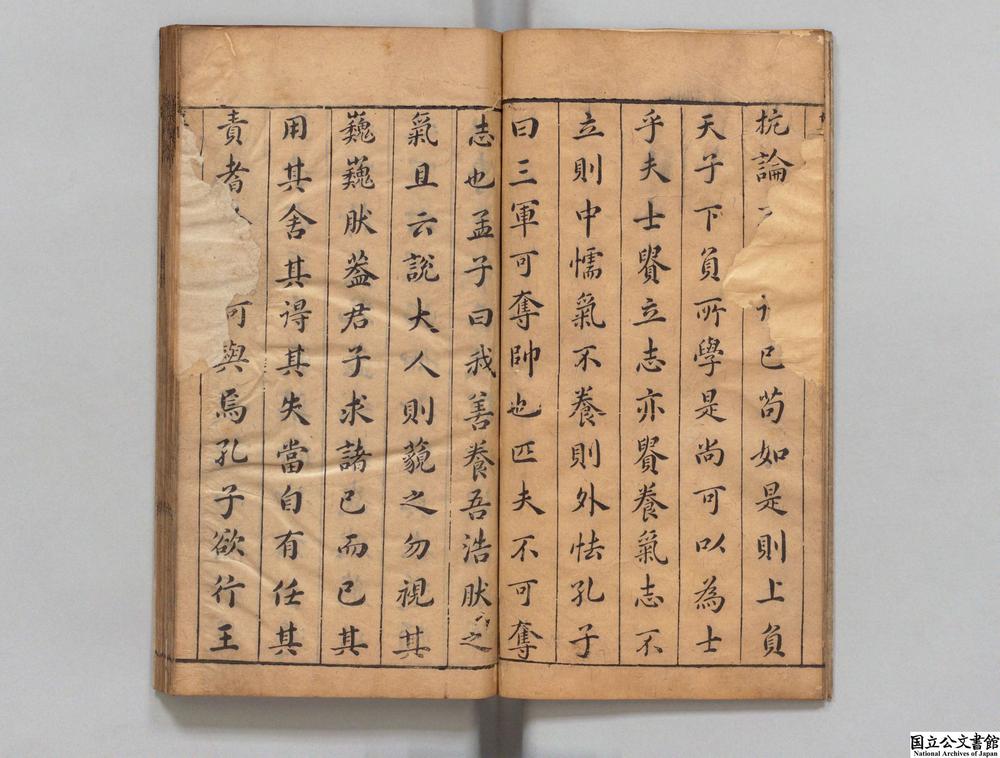 抗論訁已苟如是則上負
天子下負所學是尚可以為士
乎夫士貴立志亦貴養氣志不
立則中懦氣不養則外怯孔子
曰三軍可奪帥也匹夫不可奪
志也孟子曰我善養吾浩肰之
氣且云說大人則藐之勿視其
巍巍肰葢君子求諸已而已其
用其舍其得其失當自有任其
責者可與焉孔子欲行王
国立公文書館
National Archives of Japan